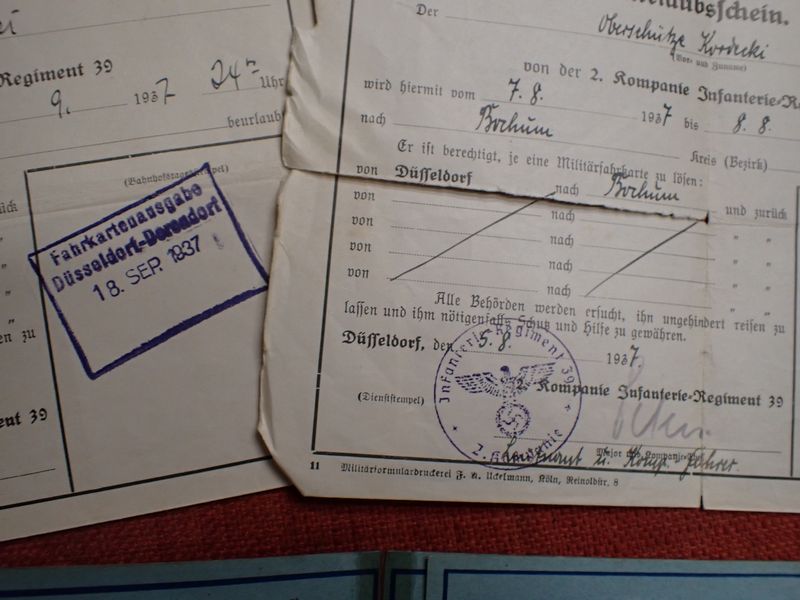 Regiment 39
9. 1937 24⁰⁰ Uhr
beurlaub
(Bahnhofstagesstempel)
Fahrkartenausgabe
Düsseldorf-Derendorf
18. SEP. 1937
rück
"
"
"
"
en zu
ent 39
laubsschein.
Der Oberschütze Kordecki
(Vor- und Zuname)
von der 2. Kompanie Infanterie-R
wird hiermit vom 7.8. 1937 bis 8.8.
nach Bochum Kreis (Bezirk)
Er ist berechtigt, je eine Militärfahrkarte zu lösen:
von Düsseldorf nach Bochum und zurück
von nach " "
von nach " "
von nach " "
von nach " "
Alle Behörden werden ersucht, ihn ungehindert reisen zu
lassen und ihm nötigenfalls Schutz und Hilfe zu gewähren.
Düsseldorf, den 5.8. 1937.
2. Kompanie Infanterie-Regiment 39
(Dienststempel)
Infanterie-Regiment 39
2. Kompanie
Major und Kompaniechef
Leutnant u. Komp.-Führer.
11 Militärformulardruckerei F. W. Uckelmann, Köln, Reinoldstr. 8